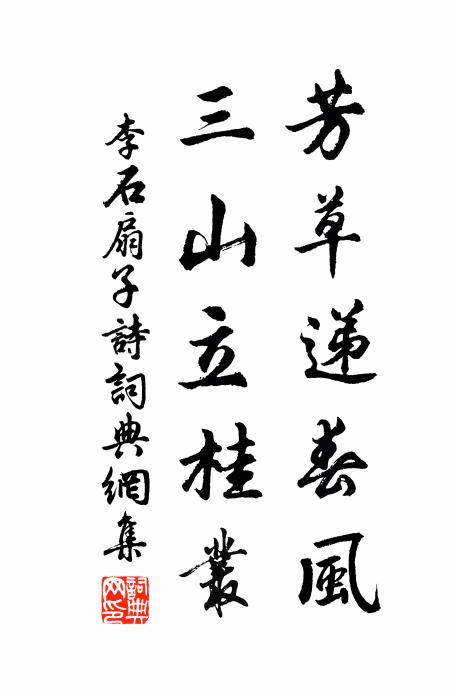 芳草递春風
三山立桂叢
李石扇子詩詞典網集
詞典網印